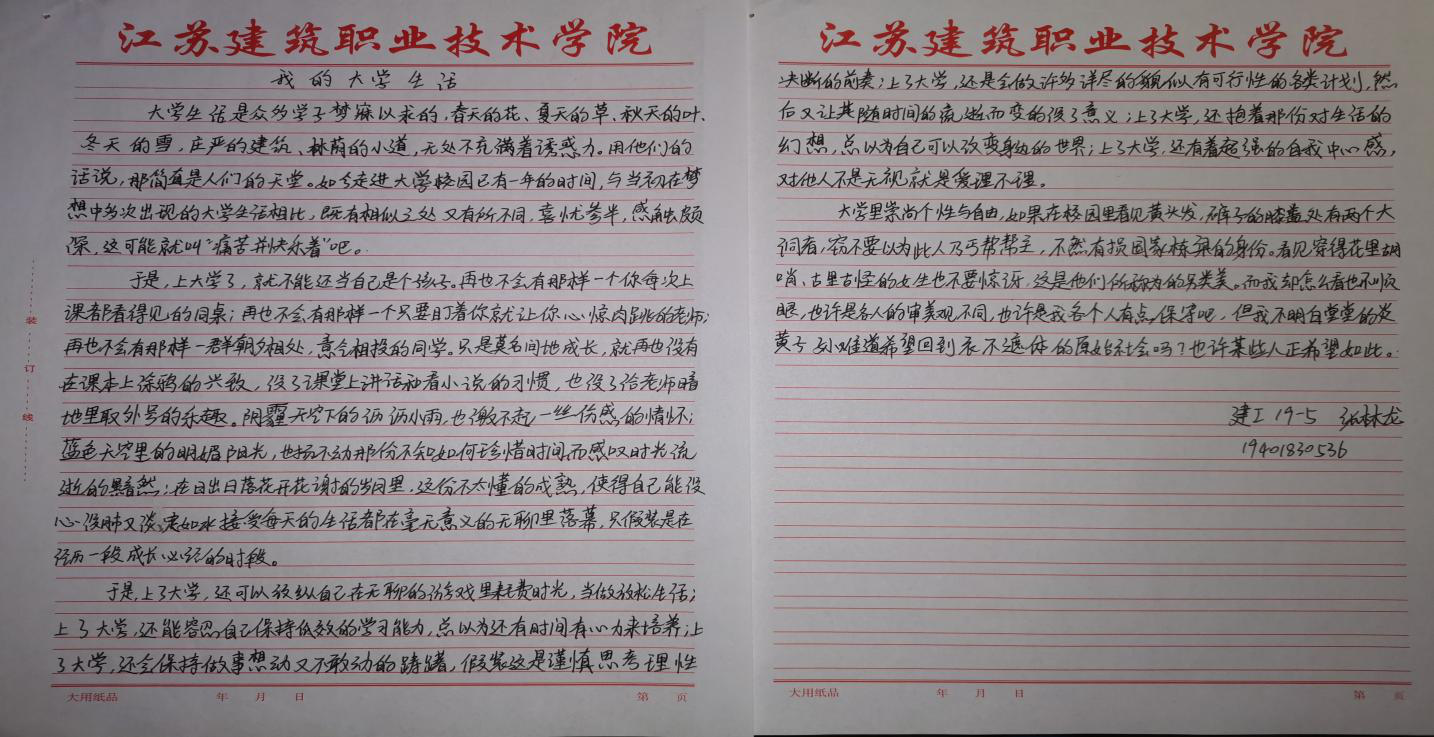 江苏建筑职业技术学院
我的大学生活
大学生活是众多学子梦寐以求的,春天的花、夏天的草、秋天的叶、
冬天的雪,庄严的建筑、林荫的小道,无处不充满着诱惑力。用他们的
话说,那简直是人们的天堂。如今走进大学校园已有一年的时间,与当初在梦
想中多次出现的大学生活相比,既有相似之处又有所不同,喜忧参半,感触颇
深,这可能就叫“痛苦并快乐着”吧。
于是,上大学了,就不能还当自己是个孩子。再也不会有那样一个你每次上
课都看得见的同桌;再也不会有那样一个只要盯着你就让你心惊肉跳的老师;
再也不会有那样一群朝夕相处,意合相投的同学。只是莫名间地成长,就再也没有
在课本上涂鸦的兴致,没了课堂上讲话和看小说的习惯,也没了给老师暗
地里取外号的乐趣。阴霾天空下的沥沥小雨,也激不起一丝伤感的情怀;
蓝色天空里的明媚阳光,也扬不动那份不知如何珍惜时间而感叹时光流
逝的黯然;在日出日落花开花谢的岁月里,这份不太懂的成熟,使得自己能没
心没肺又淡定如水接受每天的生活都在毫无意义的无聊里落幕,只假装是在
经历一段成长必经的时段。
于是,上了大学,还可以放纵自己在无聊的游戏里耗费时光,当做放松生活;
上了大学,还能容忍自己保持低效的学习能力,总以为还有时间有心力来培养;上
了大学,还会保持做事想动又不敢动的踌躇,假装这是谨慎思考理性
装
订
线
大用纸品 年 月 日 第 页
江苏建筑职业技术学院
决断的前奏;上了大学,还是会做许多详尽的貌似有可行性的各类计划,然
后又让其随时间的流逝而变的没了意义;上了大学,还抱着那份对生活的
幻想,总以为自己可以改变身边的世界;上了大学,还有着超强的自我中心感,
对他人不是无视就是爱理不理。
大学里崇尚个性与自由,如果在校园里看见黄头发,裤子的膝盖处有两个大
洞者,窃不要以为此人乃丐帮帮主,不然有损国家栋梁的身份。看见穿得花里胡
哨、古里古怪的女生也不要惊讶,这是他们所称为的另类美。而我却怎么看也不顺
眼,也许是各人的审美观不同,也许是我各个人有点保守吧,但我不明白堂堂的炎
黄子孙难道希望回到衣不遮体的原始社会吗?也许某些人正希望如此。
建工19-5 张林龙
19401830536
大用纸品 年 月 日 第 页